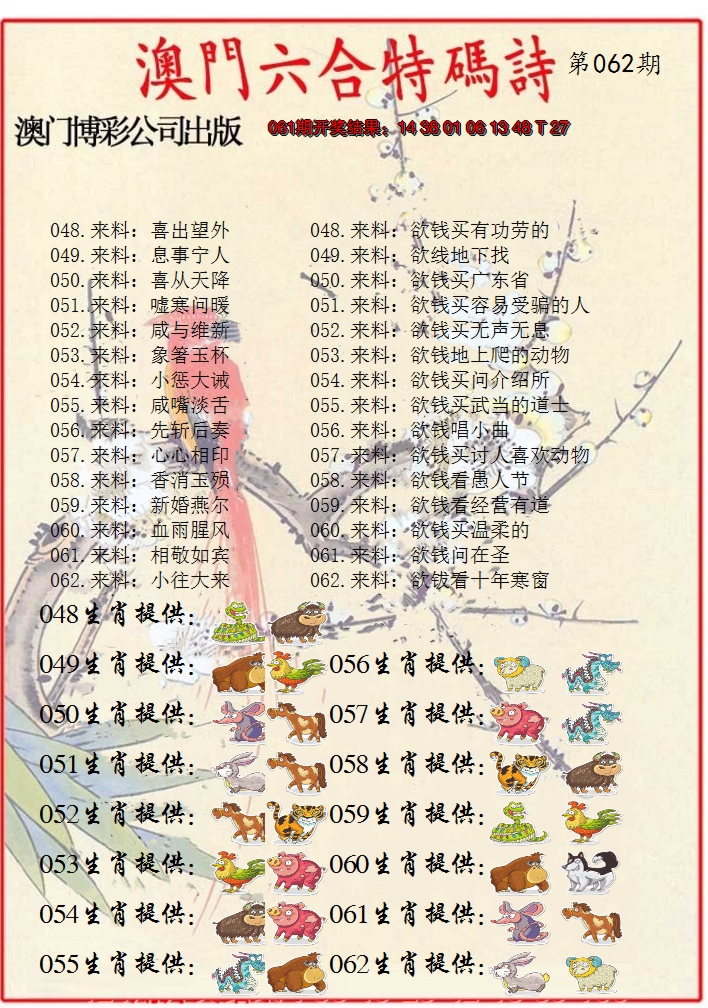 澳門六合特碼詩 第062期
澳门博彩公司出版 061期开奖结果：14 36 01 06 13 48 T 27
048.来料：喜出望外 048.来料：欲钱买有功劳的
049.来料：息事宁人 049.来料：欲线地下找
050.来料：喜从天降 050.来料：欲钱买广东省
051.来料：嘘寒问暖 051.来料：欲钱买容易受骗的人
052.来料：咸与维新 052.来料：欲钱买无声无息
053.来料：象箸玉杯 053.来料：欲钱地上爬的动物
054.来料：小惩大诫 054.来料：欲钱买问介绍所
055.来料：咸嘴淡舌 055.来料：欲钱买武当的道士
056.来料：先斩后奏 056.来料：欲钱唱小曲
057.来料：心心相印 057.来料：欲钱买讨人喜欢动物
058.来料：香消玉殒 058.来料：欲钱看愚人节
059.来料：新婚燕尔 059.来料：欲钱看经营有道
060.来料：血雨腥风 060.来料：欲钱买温柔的
061.来料：相敬如宾 061.来料：欲钱问在圣
062.来料：小往大来 062.来料：欲钹看十年寒窗
048生肖提供：
049生肖提供： 056生肖提供：
050生肖提供： 057生肖提供：
051生肖提供： 058生肖提供：
052生肖提供： 059生肖提供：
053生肖提供： 060生肖提供：
054生肖提供： 061生肖提供：
055生肖提供： 062生肖提供：